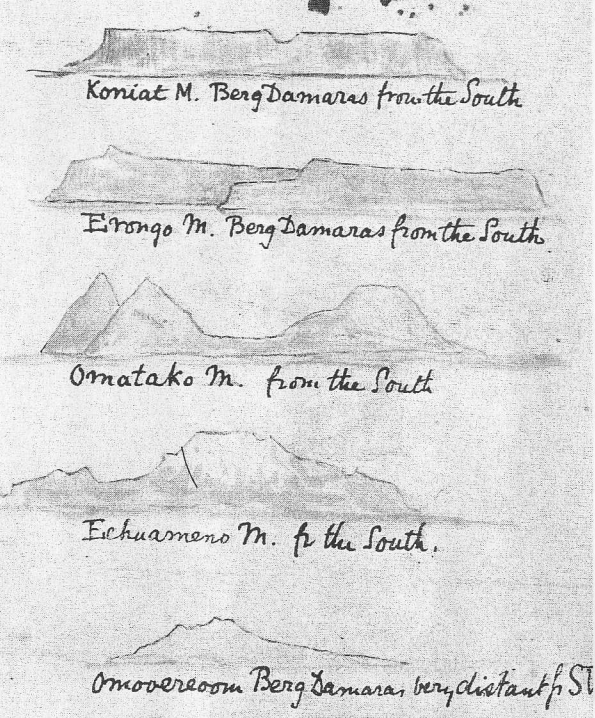 Koniat M. Berg Damaras from the South
Erongo M. Berg Damaras from the South
Omatako M. from the South
Echuameno M. fr the South.
Omovereoom Berg Damaras very distant fr